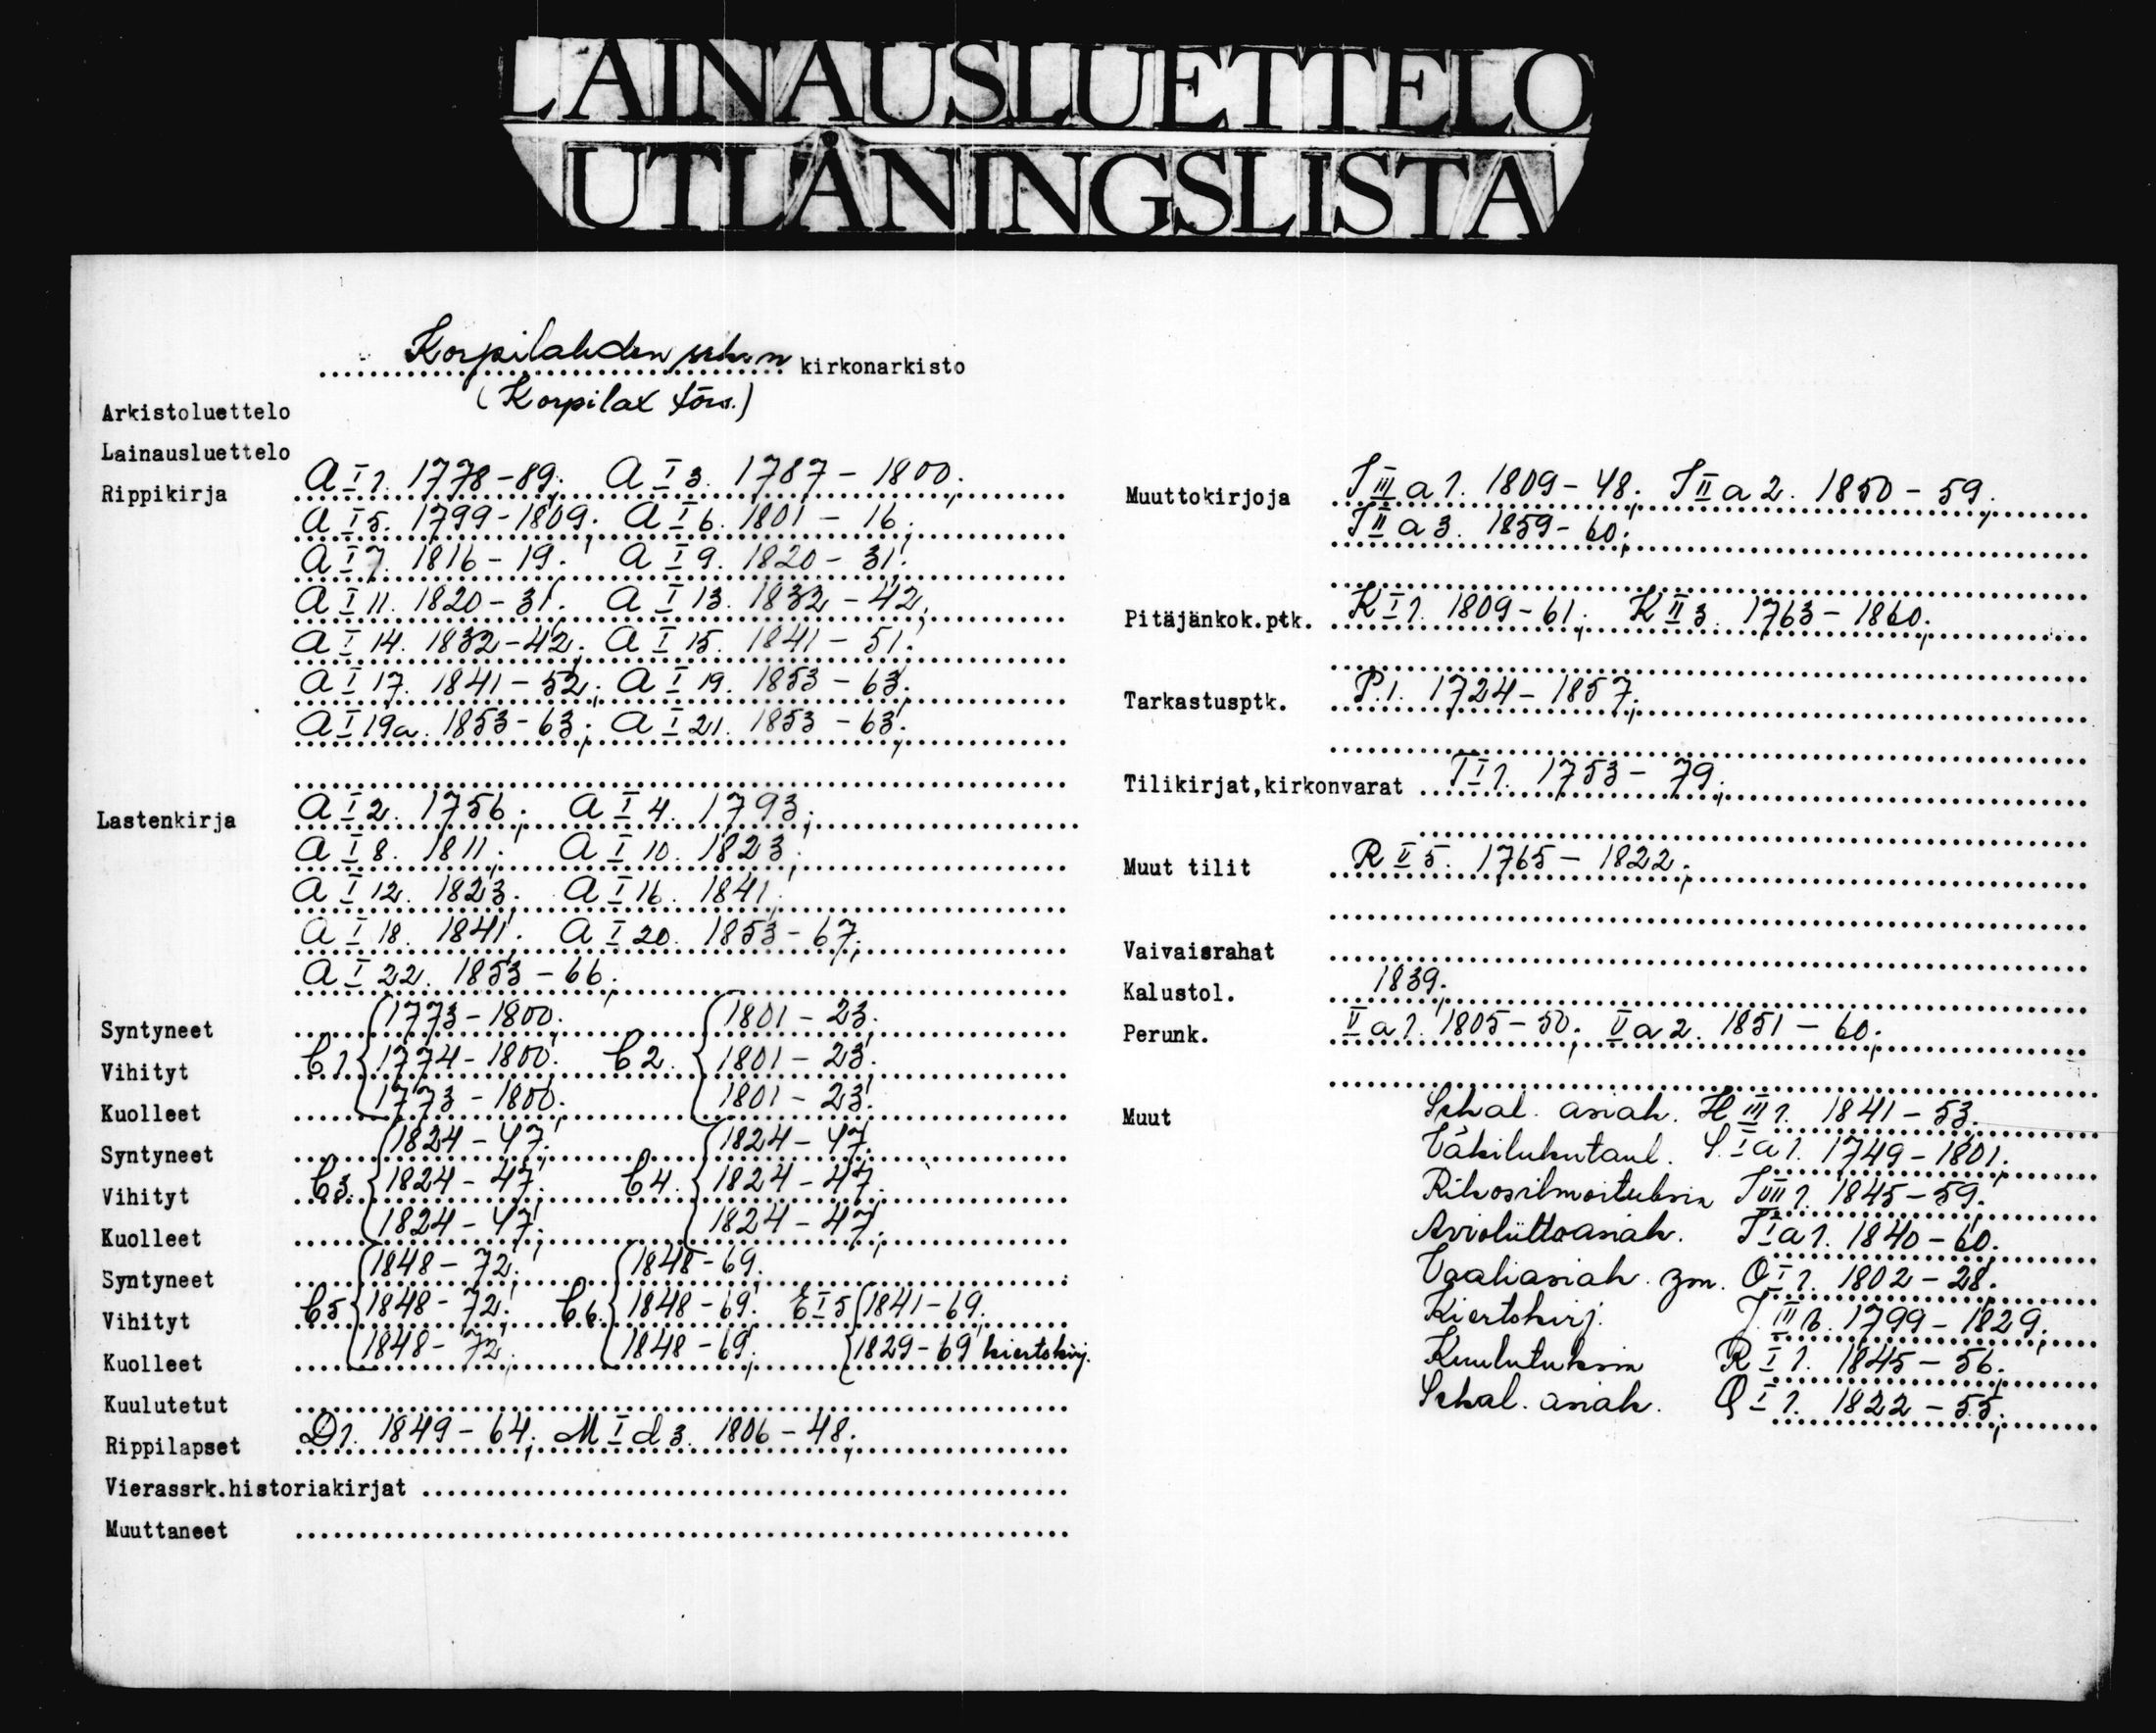 LAINAUSLUETTELO
UTLÅNINGSLISTA
Korpilahden srk:n kirkonarkisto
(Korpilax förs.)
Arkistoluettelo
Lainausluettelo
Rippikirja A I 1. 1778-89; A I 3. 1787-1800;
A I 5. 1799-1809; A I 6. 1801-16;
A I 7. 1816-19; A I 9. 1820-31;
A I 11. 1820-31; A I 13. 1832-42;
A I 14. 1832-42; A I 15. 1841-51;
A I 17. 1841-52; A I 19. 1853-63;
A I 19a. 1853-63; A I 21. 1853-63;
Lastenkirja A I 2. 1756; A I 4. 1793;
A I 8. 1811; A I 10. 1823;
A I 12. 1823; A I 16. 1841;
A I 18. 1841; A I 20. 1853-67;
A I 22. 1853-66;
Syntyneet 1773-1800; 1801-23;
Vihityt C 1. 1774-1800; C 2. 1801-23;
Kuolleet 1773-1800; 1801-23;
Syntyneet 1824-47; 1824-47;
Vihityt C 3. 1824-47; C 4. 1824-47;
Kuolleet 1824-47; 1824-47;
Syntyneet 1848-72; 1848-69;
Vihityt C 5 1848-72; C 6. 1848-69; E I 5 1841-69;
Kuolleet 1848-72; 1848-69; 1829-69 kiertokirj.
Kuulutetut
Rippilapset D 1. 1849-64; M I d 3. 1806-48;
Vierassrk.historiakirjat
Muuttaneet
Muuttokirjoja J III a 1. 1809-48; J II a 2. 1850-59;
J II a 3. 1859-60;
Pitäjänkok.ptk. K I 1. 1809-61; K II 3. 1763-1860;
Tarkastusptk. P.1. 1724-1857;
Tilikirjat,kirkonvarat T I 1. 1753-79;
Muut tilit R II 5. 1765-1822;
Vaivaisrahat
Kalustol. 1839.
Perunk. V a 1. 1805-50; V a 2. 1851-60;
Muut Sekal. asiak. H III 1. 1841-53.
Väkilukutaul. S. I a 1. 1749-1801;
Rikosilmoituksia J VII 1. 1845-59.
Avioliittoasiak. J I a 1. 1840-60;
Vaaliasiak. ym. O I 1. 1802-28.
Kiertokirj. J. III b. 1799-1829;
Kuulutuksia R I 1. 1845-56.
Sekal. asiak. Q I 1. 1822-55;